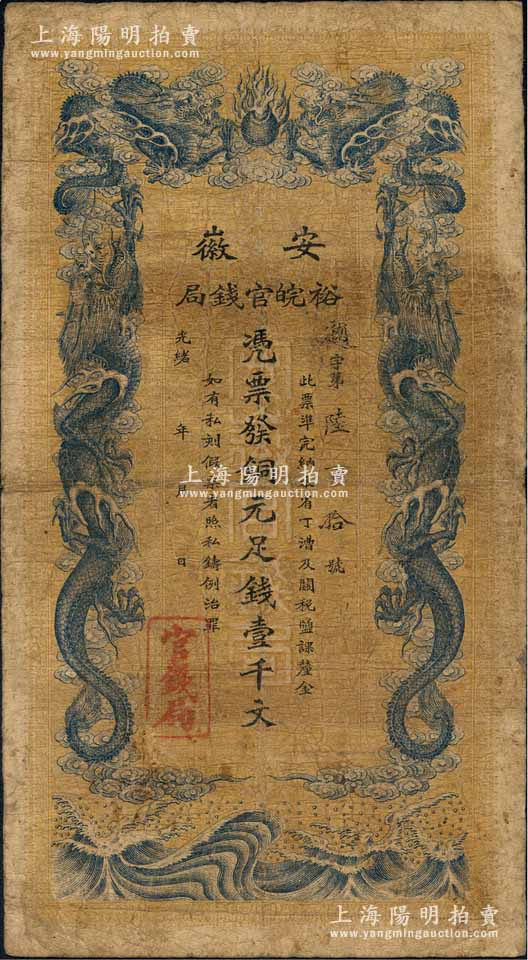 上海陽明拍賣
www.yangmingauction.com
上海陽明拍賣
www.yangmingauction.com
安徽
裕皖官錢局
字第陸拾號
此票準完納省丁漕及關稅鹽課釐金
憑票發銅元足錢壹千文
如有私刻假者照私鑄例治罪
光緒年月日
官錢局
上海陽明拍賣
www.yangmingauction.com
上海陽明拍賣
www.yangmingauction.com